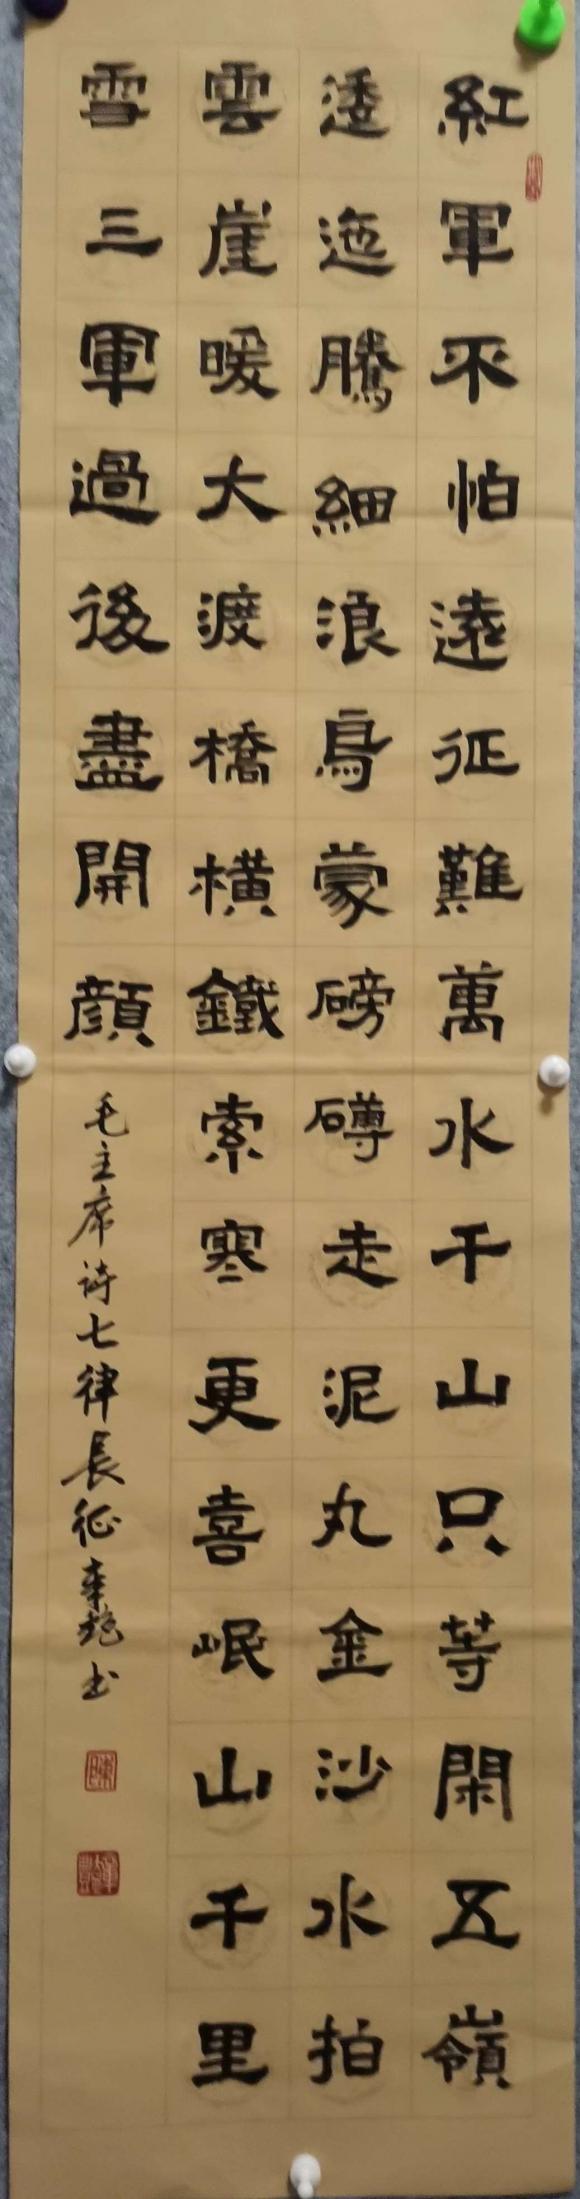 紅軍不怕遠征難萬水千山只等閑五嶺
逶迤騰細浪烏蒙磅礴走泥丸金沙水拍
雲崖暖大渡橋橫鐵索寒更喜岷山千里
雪三軍過後盡開顏
毛主席诗七律長征 书